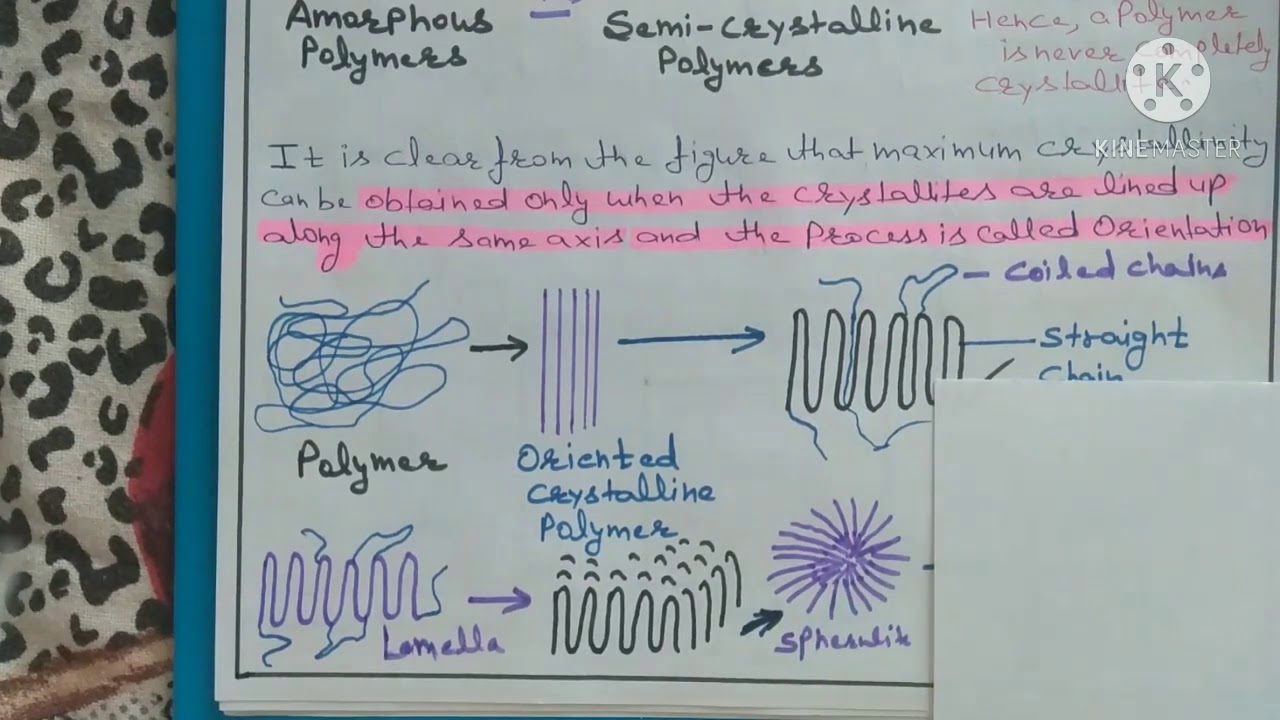 Amorphous
Polymers
Semi-crystalline
Polymers
Hence, a Polymer
is never completely
K
KINEMASTER
It is clear from the figure that maximum crystallinity
can be obtained only when the crystallites are lined up
along the same axis and the Process is called Orientation
Coiled chains
Straight
Chain
Polymer
Oriented
Crystalline
Polymer
Lamella
Spherulite